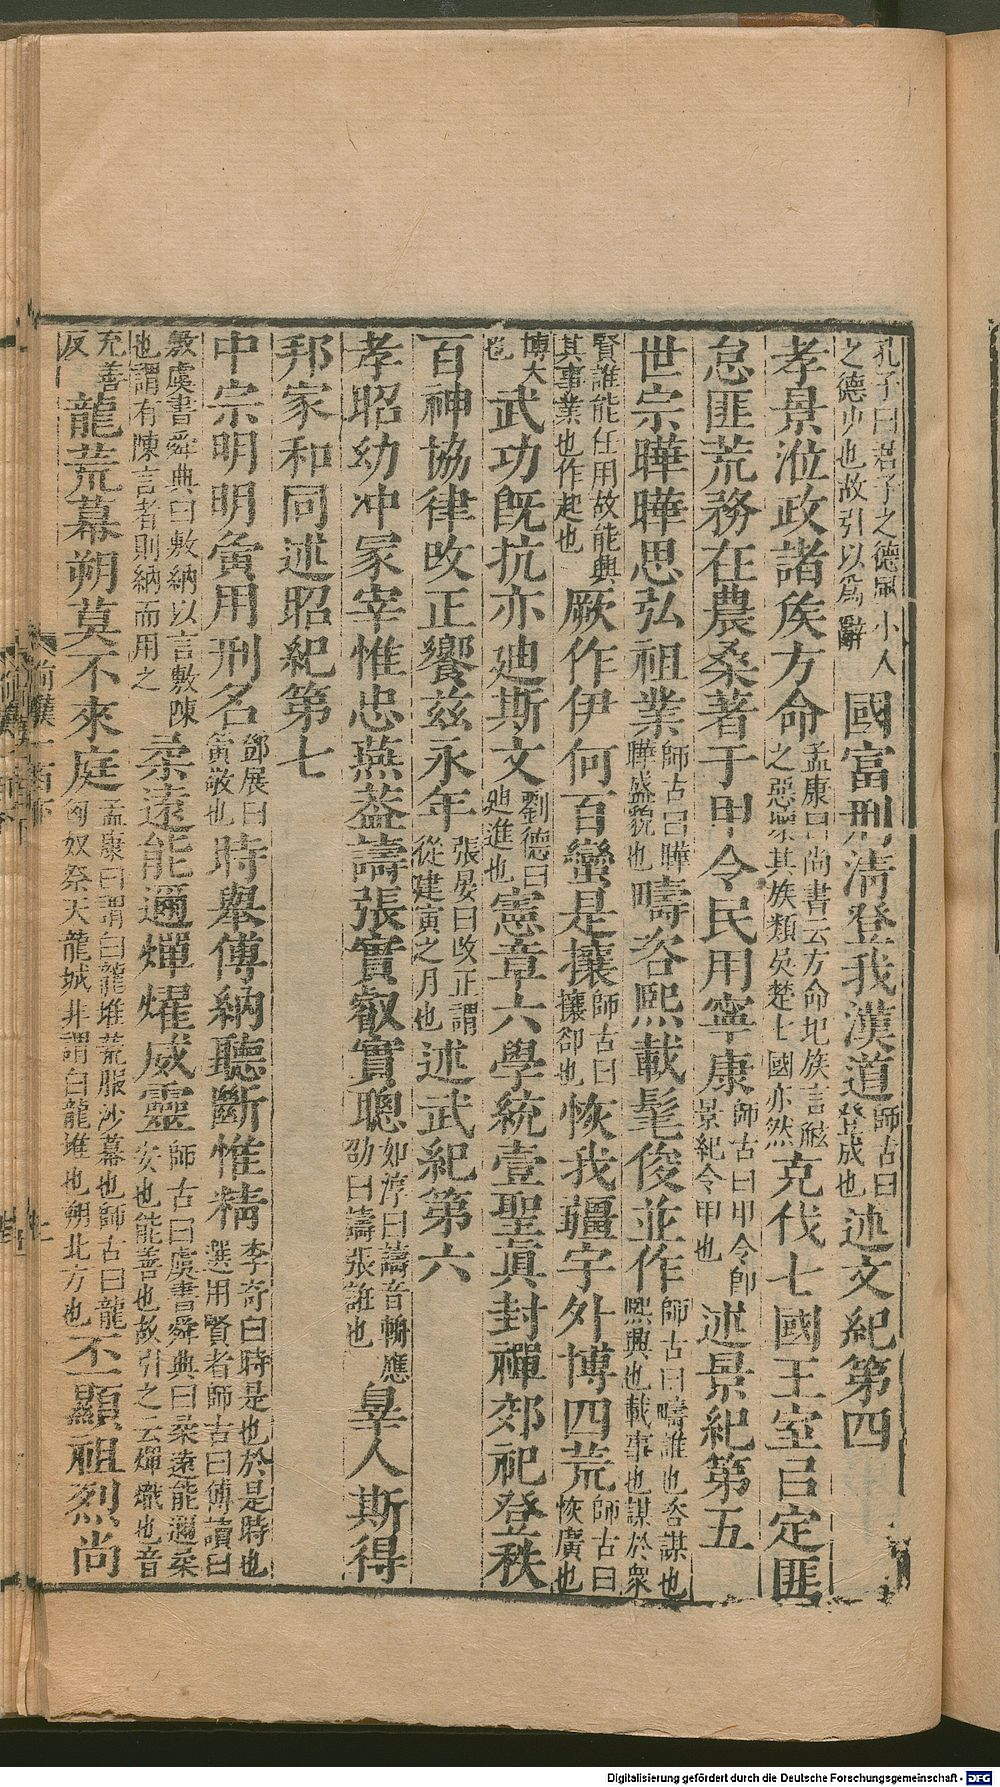 孔子曰君子之德風小人之德少也故引以爲辭國富刑清登我漢道師古曰登成也述文紀第四
孝景涖政諸矦方命孟康曰尚書云方命圯族言鯀之惡壞其族類吳楚七國亦然克伐七國王室㠯定匪
怠匪荒務在農桑著于甲令民用寧康師古曰甲令卽景紀令甲也述景紀第五
世宗曄曄思弘祖業師古曰曄曄盛貌也疇咨熙載髦俊並作師古曰疇誰也咨謀也熙興也載事也謀於衆
賢誰能任用故能興其事業也作起也厥作伊何百蠻是攘師古曰攘卻也恢我疆宇外博四荒師古曰恢廣也
博大也武功旣抗亦廸斯文劉德曰廸進也憲章六學統壹聖眞封禪郊祀登秩
百神協律改正饗兹永年張晏曰改正謂從建寅之月也述武紀第六
孝昭幼冲冢宰惟忠燕蓋譸張實叡實聰如淳曰譸音輈應劭曰譸張誑也辠人斯得
邦家和同述昭紀第七
中宗明明夤用刑名鄧展曰夤敬也時舉傅納聽斷惟精李奇曰時是也於是時也選用賢者師古曰傅讀曰
敷虞書舜典曰敷納以言敷陳也謂有陳言者則納而用之柔遠能邇燀燿威靈師古曰虞書舜典曰柔遠能邇柔安也能善也故引之云燀熾也音
充善反龍荒幕朔莫不來庭孟康曰謂白龍堆荒服沙幕也師古曰龍匈奴祭天龍城非謂白龍堆也朔北方也丕顯祖烈尚
Digitalisierung gefördert durch die Deutsche Forschungsgemeinschaft - DFG